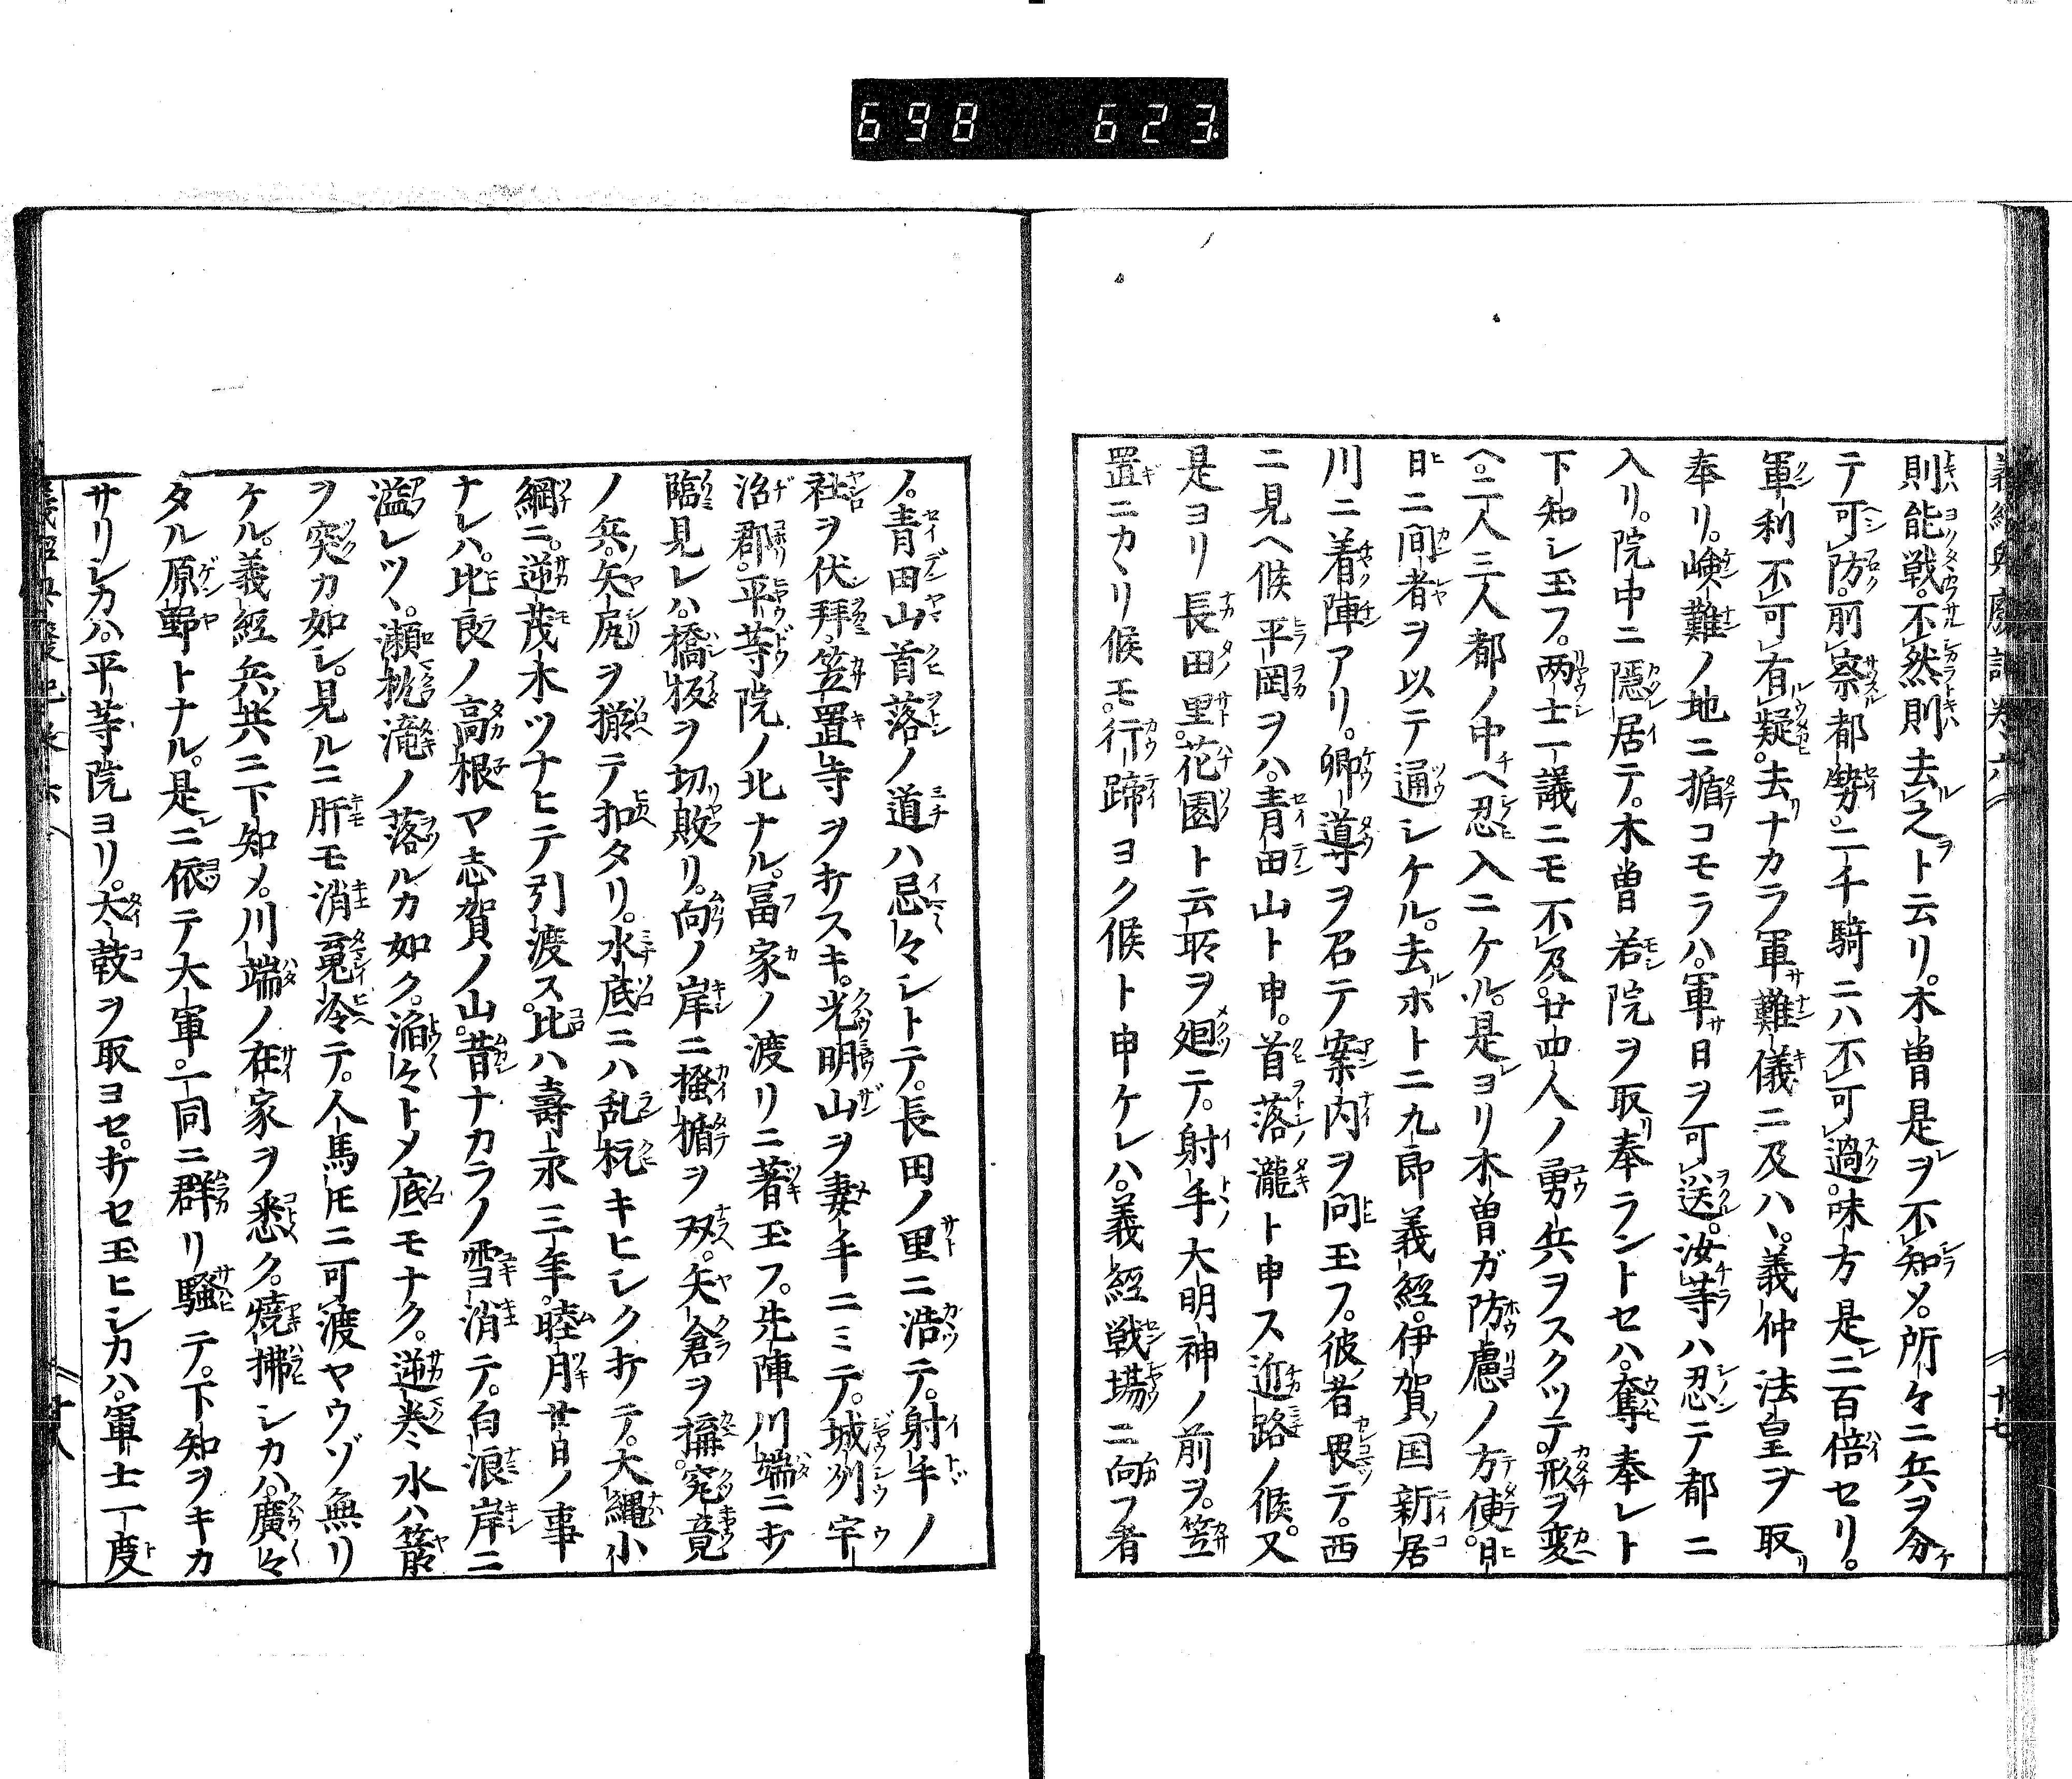 698 623
則能戦。不然則去之ト云リ。木曽是ヲ不知メ。所々ニ兵ヲ分
テ可防。前察都勢。二千騎ニハ不可過。味方是ニ百倍セリ。
軍利不可有疑。去ナカラ軍難儀ニ及ハヽ。義仲法皇ヲ取
奉リ。嶮難ノ地ニ揗コモラハ。軍日ヲ可送。汝等ハ忍テ都ニ
入リ。院中ニ隠居テ。木曽若院ヲ取奉ラントセハ。奪奉レト
下知シ玉フ。两士一議ニモ不及。廿四人ノ勇兵ヲスクツテ。形ヲ変
ヘ。二人三人都ノ中ヘ忍入ニケル。是ヨリ木曽ガ防慮ノ方便。日
日ニ間者ヲ以テ通シケル。去ホトニ九郎義經。伊賀国新居
川ニ着陣アリ。卿導ヲ召テ案内ヲ問玉フ。彼者畏テ。西
ニ見ヘ候平岡ヲハ。青田山ト申。首落瀧ト申ス近路ノ候。又
是ヨリ長田里。花園ト云所ヲ廻テ。射手大明神ノ前ヲ。笠
置ニカヽリ候モ。行蹄ヨク候ト申ケレハ。義經戦場ニ向フ者
ノ。青田山首落ノ道ハ忌々シトテ。長田ノ里ニ浩テ。射手ノ
社ヲ伏拜。笠置寺ヲ打スキ。光明山ヲ妻手ニミテ。城州宇
治郡。平等院ノ北ナル。冨家ノ渡リニ著玉フ。先陣川端ニ打
臨見レハ。橋板ヲ切敗リ。向ノ岸ニ掻揗ヲ双。矢倉ヲ構。究竟
ノ兵。矢尻ヲ揃テ扣タリ。水底ニハ乱杭キヒシク打テ。大縄小
綱ニ。逆茂木ツナヒテ引渡ス。比ハ壽永三年。睦月廿日ノ事
ナレハ。比良ノ高根マ志賀ノ山。昔ナカラノ雪消テ。白浪岸ニ
溢レツヽ。瀬枕滝ノ落ルカ如ク。滔々トメ底モナク。逆巻水ハ箭
ヲ突カ如シ。見ルニ肝モ消䰟冷テ。人馬トモニ可渡ヤウゾ無リ
ケル。義經兵共ニ下知メ。川端ノ在家ヲ悉ク。燒拂シカハ。廣々
タル原野トナル。是ニ依テ大軍。一同ニ群リ騒テ。下知ヲキカ
サリシカハ。平等院ヨリ。大鼓ヲ取ヨセ。打セ玉ヒシカハ。軍士一度